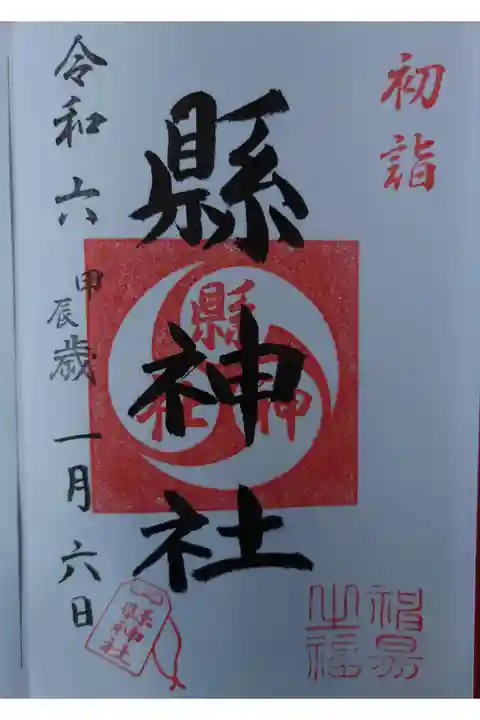 初詣
縣神社
縣神社
令和六甲辰歳一月六日
縣神社